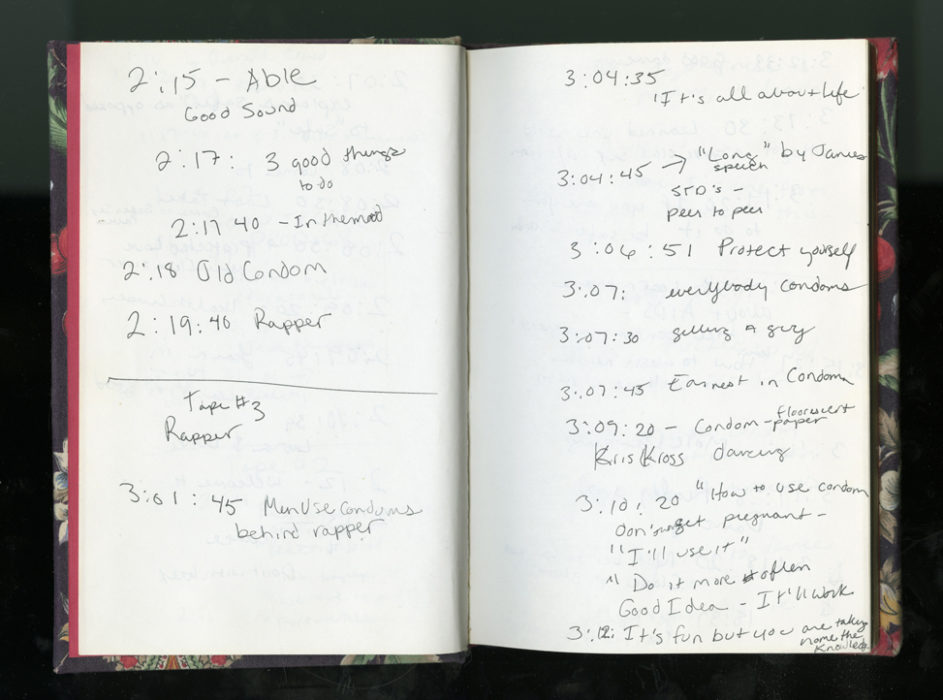 2:15 - Able
Good Sound
2:17: 3 good things
to do
2:17 40 - In the mood
2:18 Old Condom
2:19:40 Rapper
Tape #3
Rapper
3:01:45 Men Use Condums
behind rapper
3:04:35
"It's all about life
3:04:45 → "Long" by James
speech
STD's -
peer to peer
3:06:51 Protect yourself
3:07: everybody condoms
3:07:30 getting a guy
3:07:45 Earnest in Condom
3:09:20 - Condom - floorescent
paper
Kris Kross dancing
3:10:20 "How to use condom
Don't get pregnant -
"I'll use it"
" Do it more often
Good Idea - It'll work
3:12: It's fun but you are taking
home the
Knowledge